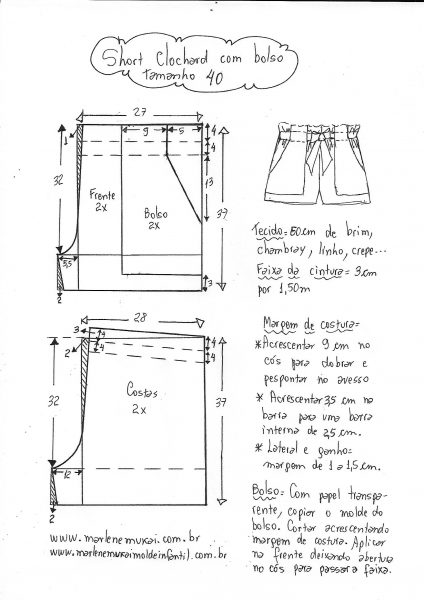 Short Clochard com bolso
tamanho 40
27
9
5
4
4
1
32
Frente
2x
Bolso
2x
13
39
5,5
3
2
Tecido=50cm de brim,
chambray, linho, crepe...
Faixa da cintura= 9cm
por 1,50m
28
3
4
4
4
4
2
32
Costas
2x
37
12
2
Margem de costura=
*Acrescentar 9 cm no
cós para dobrar e
pespontar no avesso
* Acrescentar 3,5 cm na
barra para uma barra
interna de 2,5 cm.
* Lateral e ganho=
margem de 1 a 1,5cm.
Bolso= Com papel transpa-
rente, copiar o molde do
bolso. Cortar acrescentando
margem de costura. Aplicar
na frente deixando abertura
no cós para passar a faixa.
www.marlenemukai.com.br
www.marlenemukaimoldeinfantil.com.br